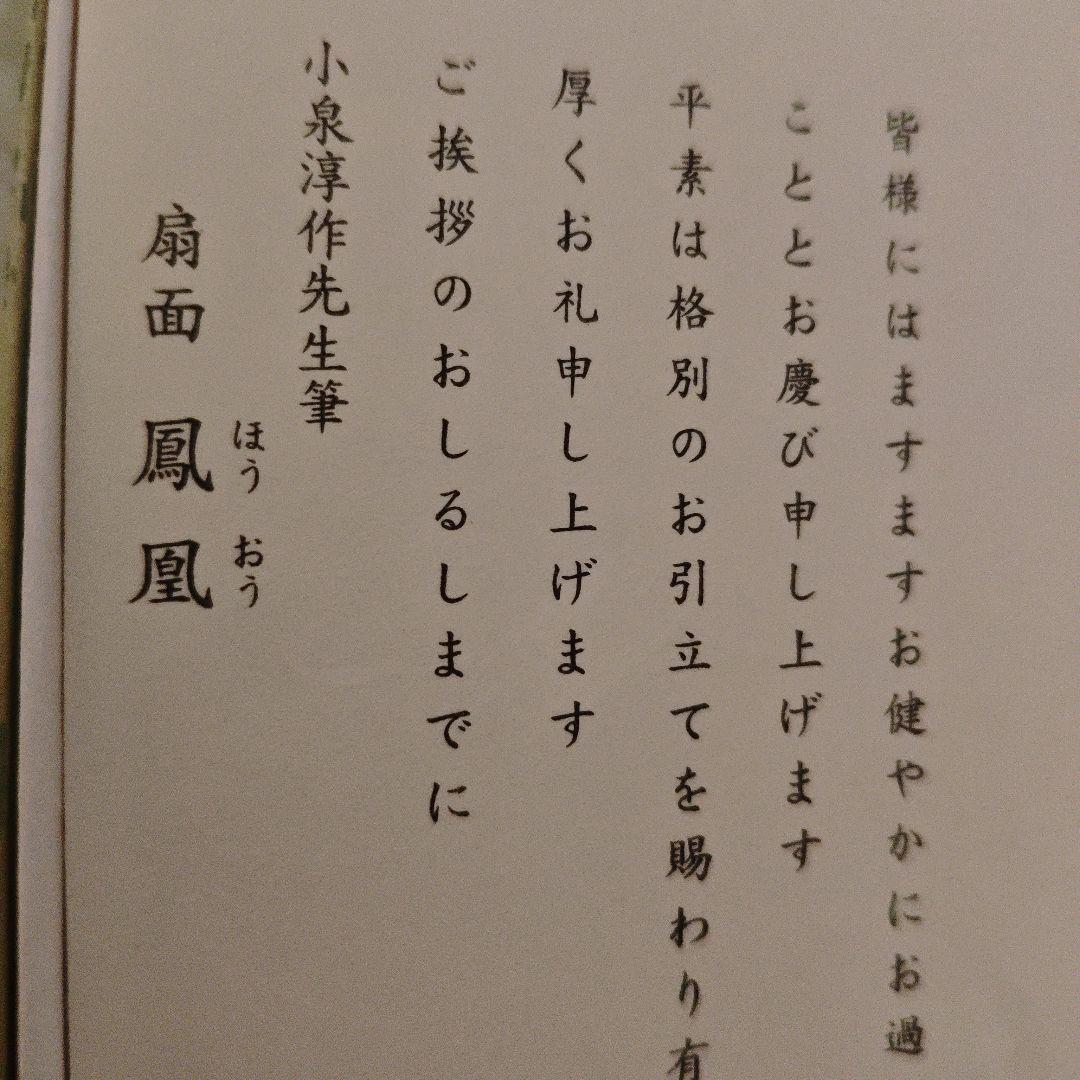 皆様にはますますお健やかにお過
こととお慶び申し上げます
平素は格別のお引立てを賜わり有
厚くお礼申し上げます
ご挨拶のおしるしまでに
小泉淳作先生筆
扇面 鳳凰
ほう おう